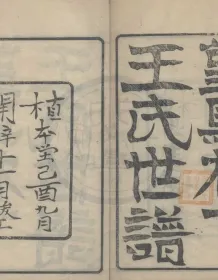 王氏世譜
植本堂己酉九月
開十一月竣工